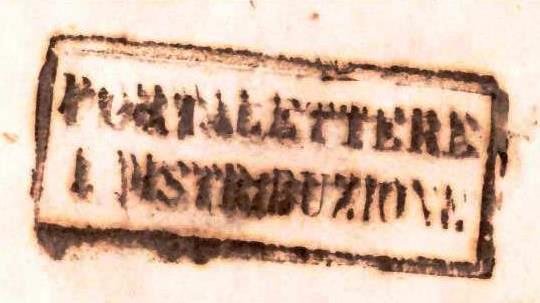 PORTALETTERE
I DISTRIBUZIONE